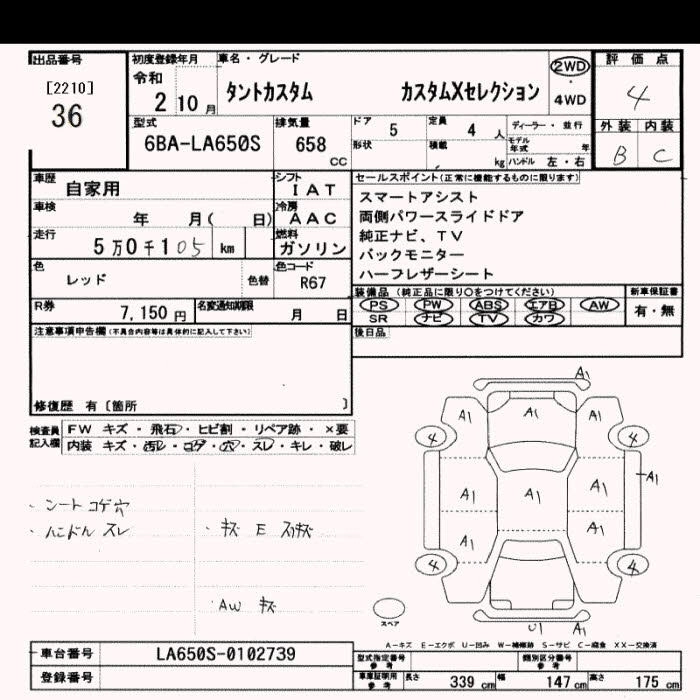 出品番号 初度登録年月 車名・グレード 評価点
[2210] 令和 2WD
36 2 10月 タントカスタム カスタムXセレクション ・ 4
4WD
型式 排気量 ドア 5 定員 4 人 ディーラー・並行 外装 内装
6BA-LA650S 658 cc 形状 積載 kg モデル年式 年 B C
ハンドル 左・右
車歴 自家用 シフト IAT セールスポイント(正常に機能するものに限ります)
車検 年 月( 日) 冷房 AAC スマートアシスト
両側パワースライドドア
走行 5万0千105 km 燃料 ガソリン 純正ナビ、TV
バックモニター
色 レッド 色替 色コード R67 ハーフレザーシート
R券 7,150円 名変通知期限 月 日 装備品(純正品に限り○をつけてください) 新車保証書
PS PW ABS エアB AW 有・無
SR ナビ TV カワ
注意事項申告欄(不具合内容等は具体的に記入して下さい) 後日品
修復歴 有〔箇所 〕
検査員 FW キズ・飛石・ヒビ割・リペア跡・×要
記入欄 内装 キズ・汚レ・コゲ・穴・スレ・キレ・破レ
・シートコゲ穴
・ハンドルスレ ・キズ E スリキズ
・AW キズ
A1
A1 A1 A1
4 4
A1
A1 A1 A1
A1 A1
4 4
スペア
U1 A1
A-キズ E-エクボ U-凹み W-補修跡 S-サビ C-腐食 XX-交換済
車台番号 LA650S-0102739 型式指定番号 参考 類別区分番号 参考
登録番号 車庫証明用 参考 長さ 339 cm 幅 147 cm 高さ 175 cm